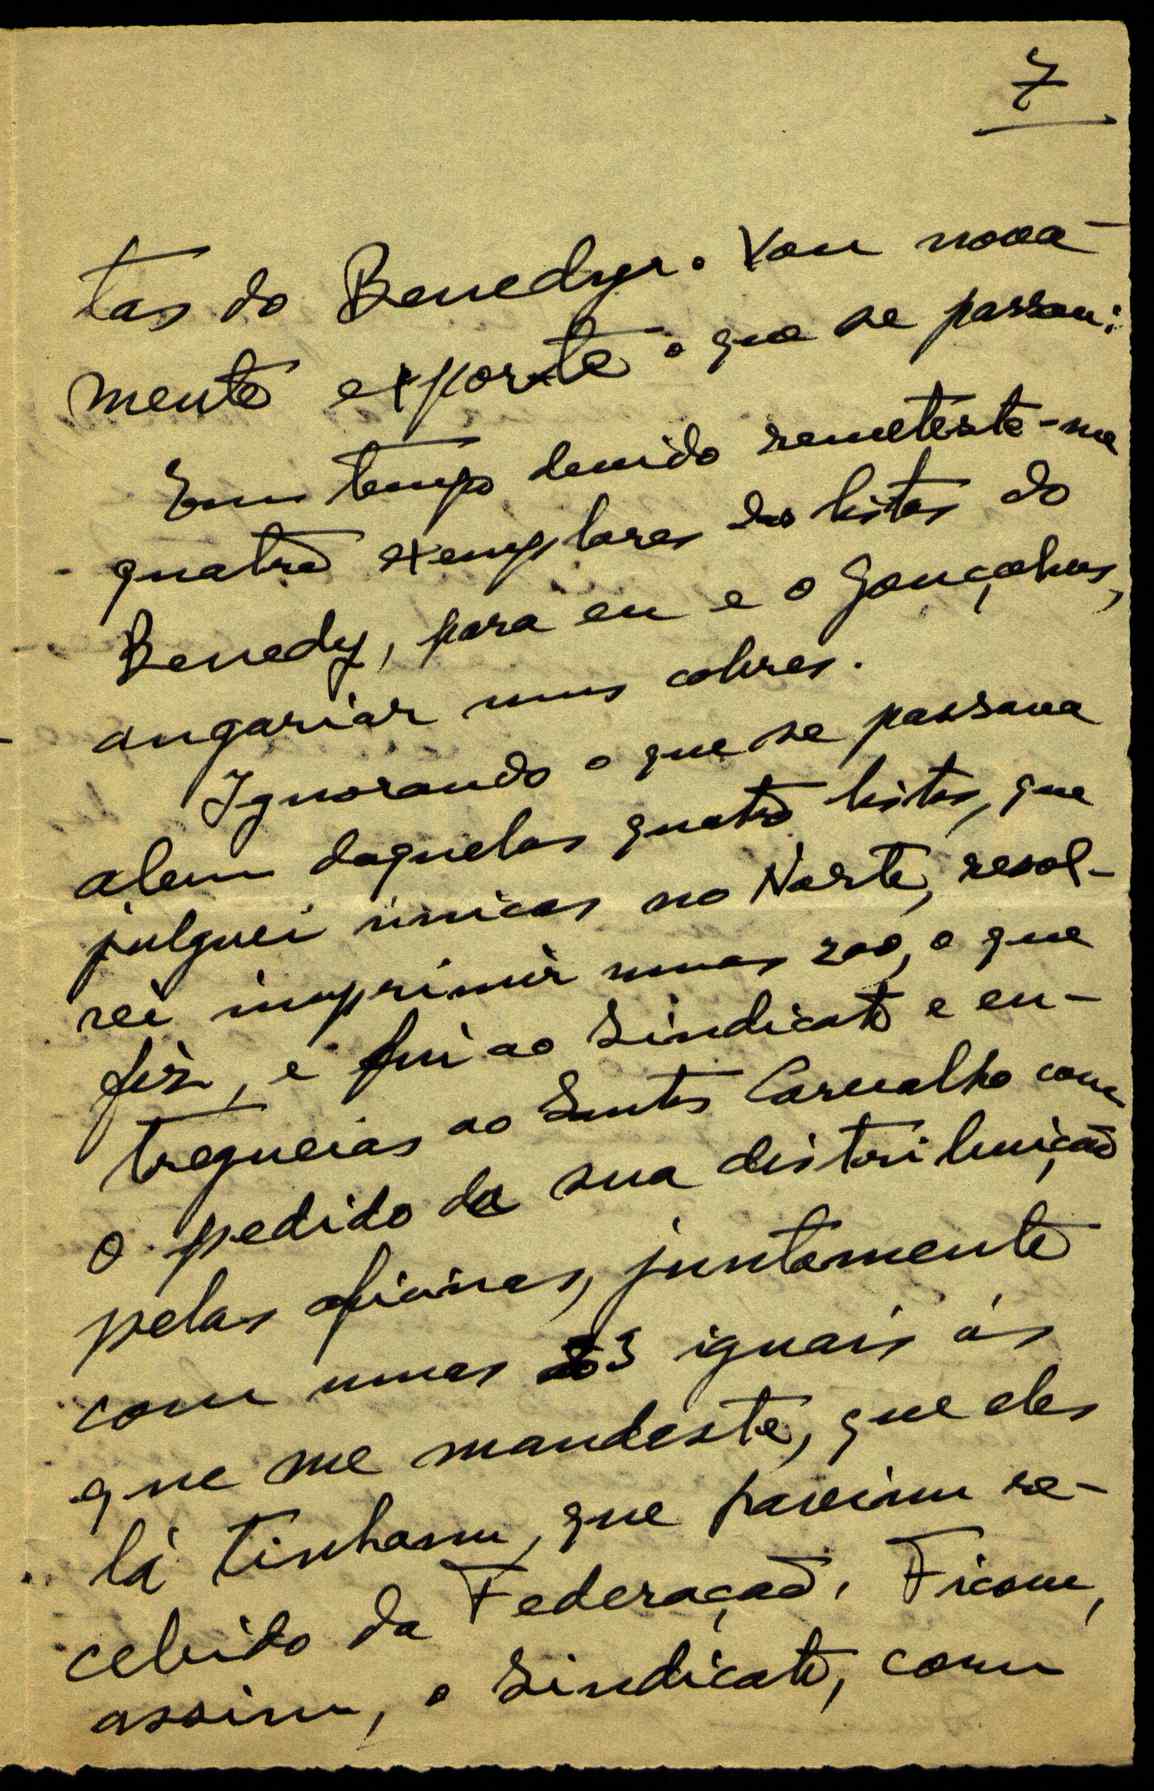 7
tas do Benedy. Vou nova-
mente expor-te o que se passou:
Em tempo devido remeteste-me
quatro exemplares das listas do
Benedy, para eu e o Gonçalves,
angariar uns cobres.
Ignorando o que se passava
alem daquelas quatro listas, que
julguei únicas no Norte, resol-
vi imprimir umas 200, o que
fiz, e fui ao Sindicato e en-
treguei-as ao Santos Carvalho com
o pedido da sua distribuição
pelas oficinas, juntamente
com umas 23 iguais ás
que me mandaste, que eles
lá tinham, que haviam re-
cebido da Federação. Ficou,
assim, o Sindicato, com